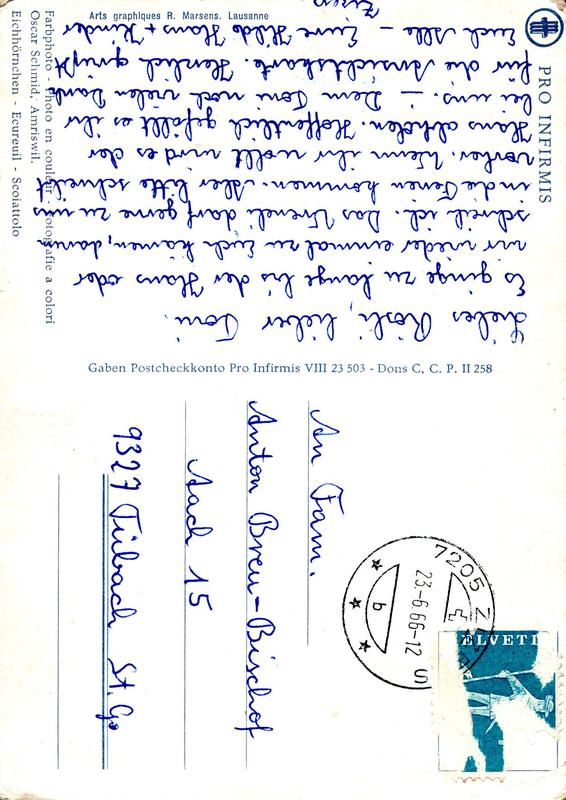 Liebes Rösli, lieber Toni.
Es ginge zu lange bis der Hans oder
wir wieder einmal zu Euch kämen, darum
schreib ich. Das Vreneli darf gerne zu uns
in die Ferien kommen. Aber bitte schreibt
vorher. Wenn ihr wollt wird es der
Hans abholen. Hoffentlich gefällt es ihr
bei uns. – Dem Toni noch vielen Dank
für die Ansichtskarte. Herzlich grüsst
Euch Alle – Eure Hilde Hans + Kinder
Zizers
PRO INFIRMIS
Eichhörnchen - Ecureuil - Scoiattolo
Oscar Schmid, Amriswil.
Farbphoto - Photo en couleur - Fotografie a colori
Arts graphiques R. Marsens. Lausanne
Gaben Postcheckkonto Pro Infirmis VIII 23 503 - Dons C. C. P. II 258
An Fam.
Anton Breu-Bischof
Aach 15
9327 Tübach St. Ga
7205 ZIZERS
23-6.66-12
b
HELVETI